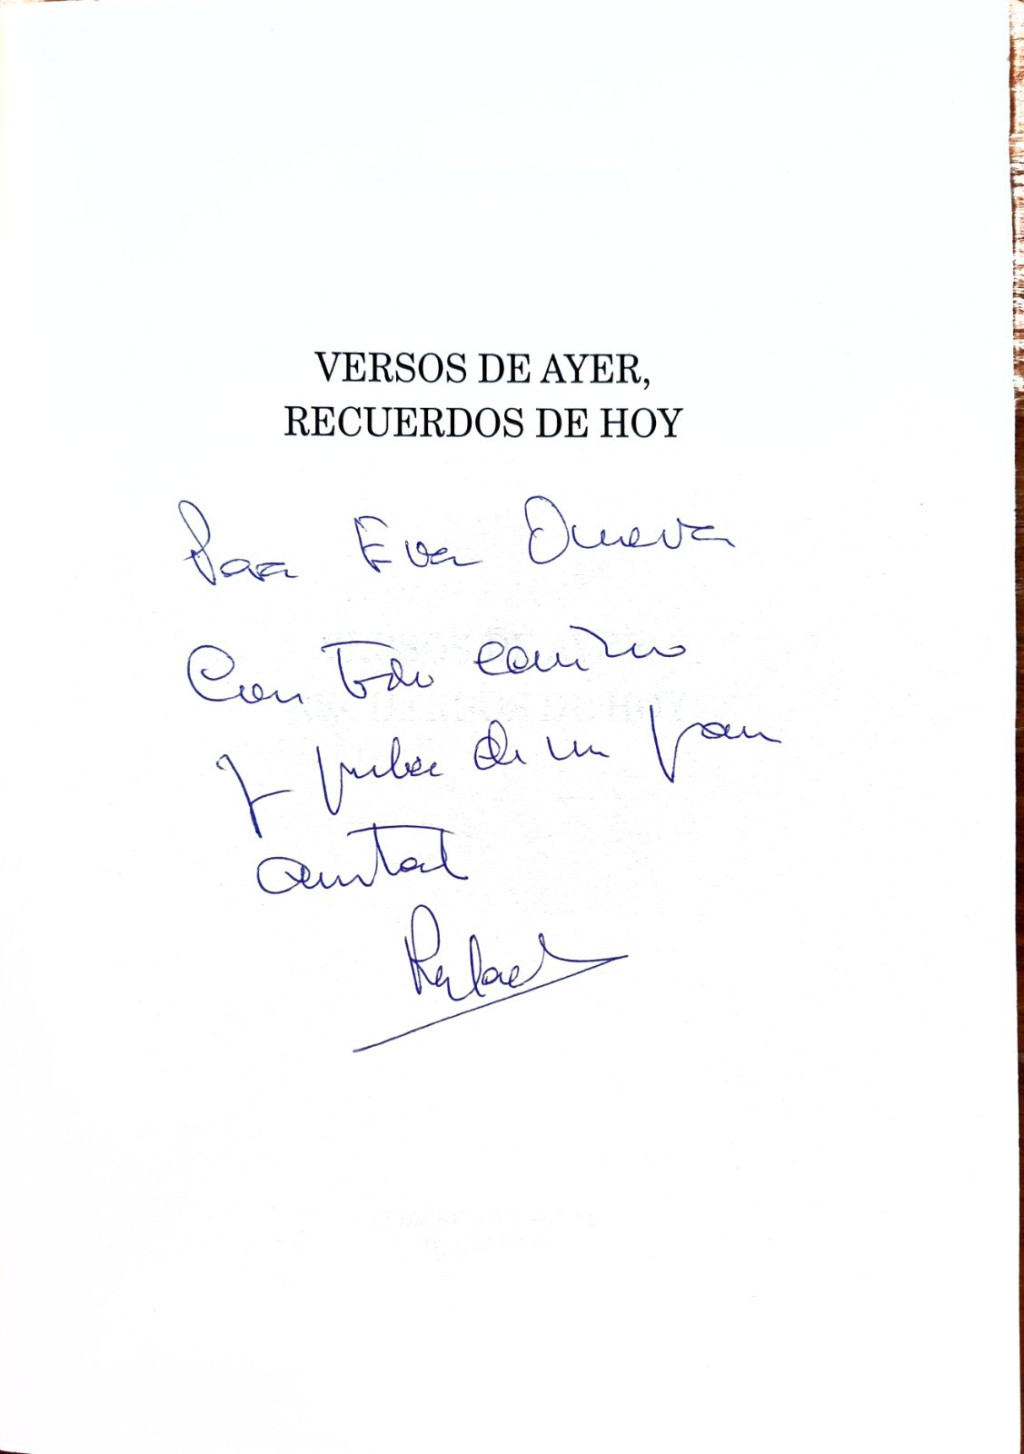 VERSOS DE AYER,
RECUERDOS DE HOY
Para Eva
Con todo cariño
y prueba de un gran
amistad
Rafael